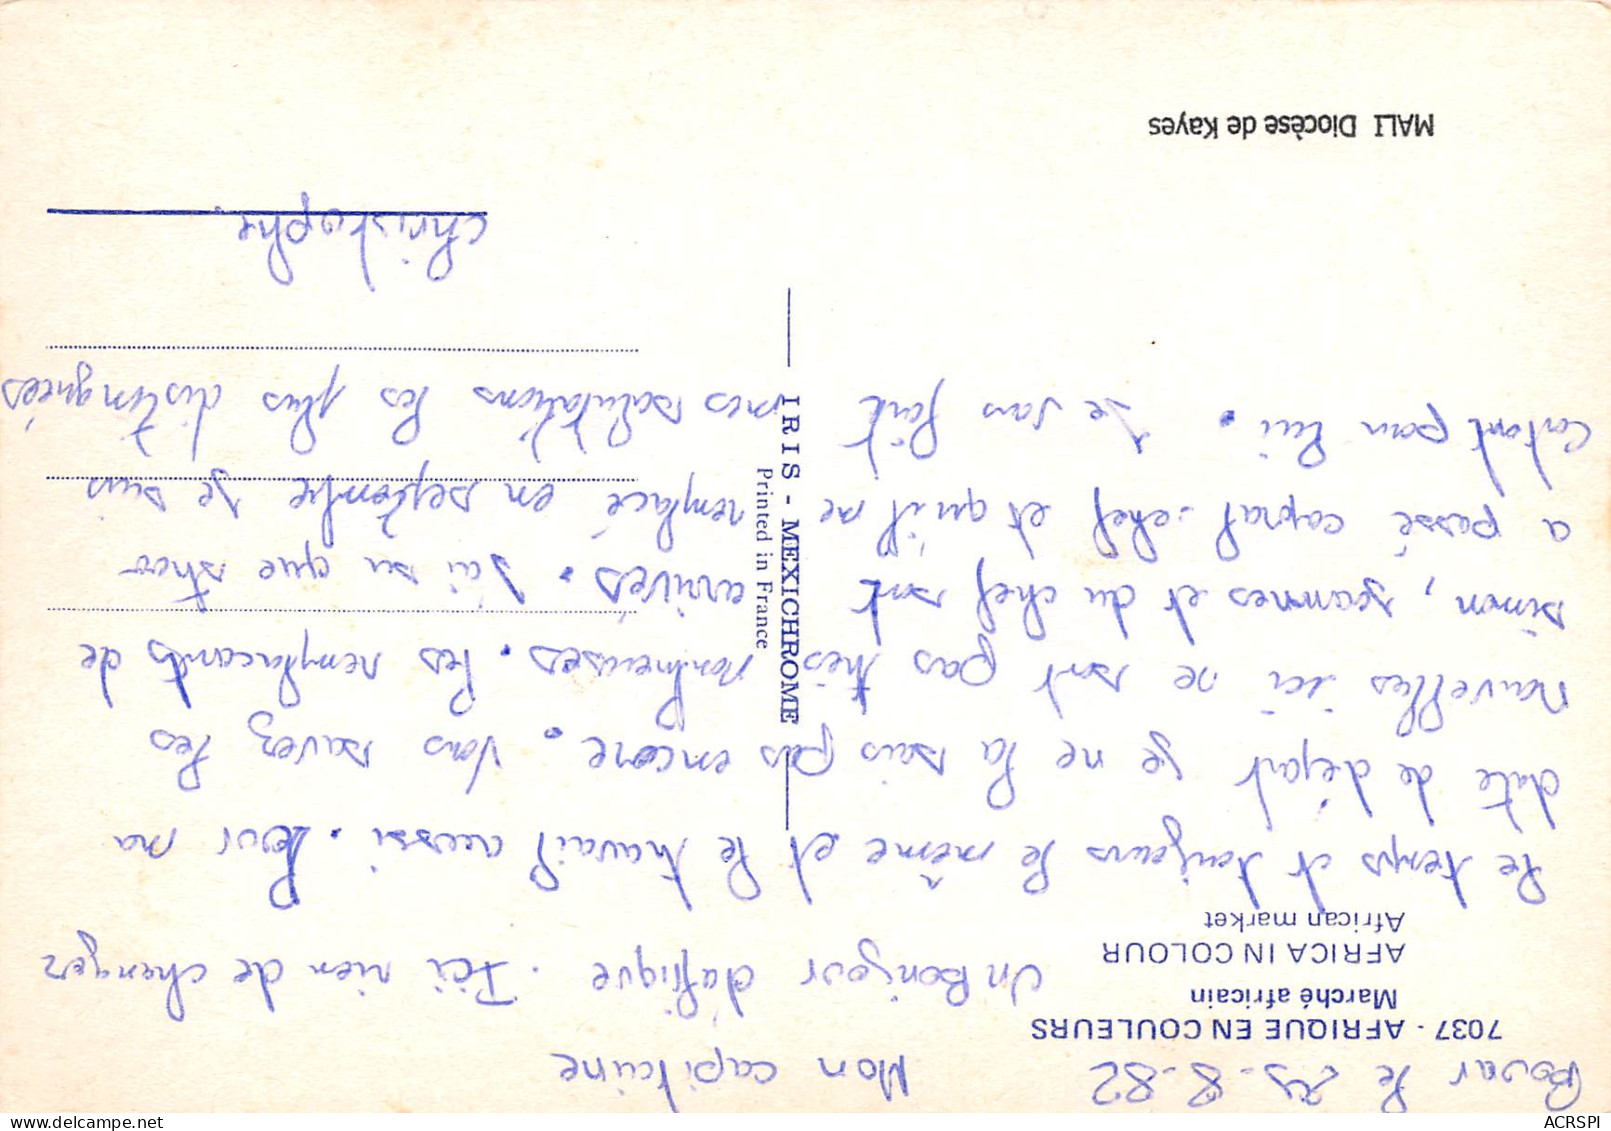 Bouar le 23-8-82 Mon capitaine
7037 - AFRIQUE EN COULEURS
Marché africain
AFRICA IN COLOUR
African market
Un Bonjour d'afrique. Ici rien de changer
le temps et toujours le même et le travail aussi. Pour ma
date de départ je ne la sais pas encore. Vous savez les
nouvelles ici ne sont pas très nombreuses. les remplacants de
simon, jeannes et du chef sont arrivés. J'ai su que
a passé caporal-chef et qu'il ne remplacé en septembre je suis
content pour lui. Je vous fait mes salutations les plus distinguées
christophe.
IRIS - MEXICHROME
Printed in France
MALI Diocèse de Kayes
delcampe.net
ACRSPI